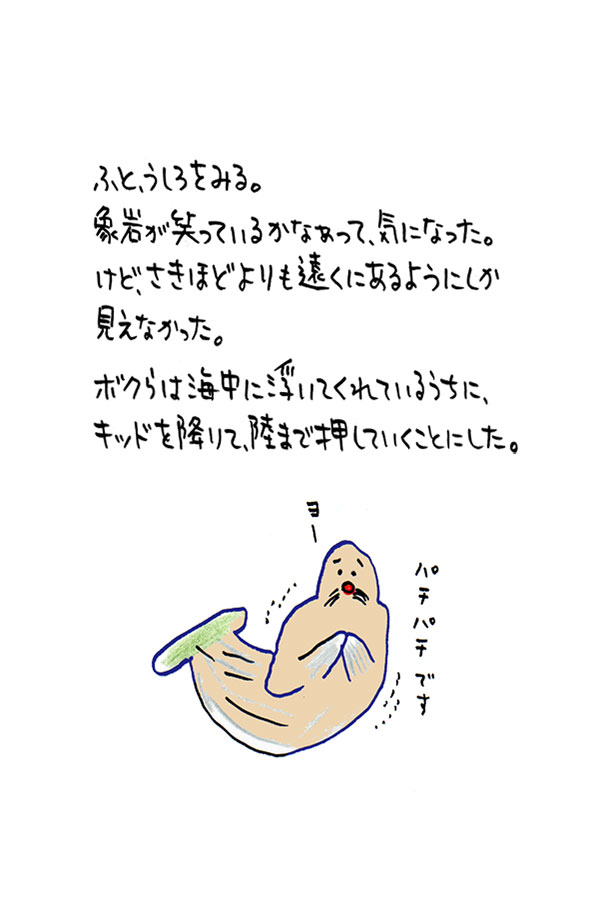 ふと、うしろをみる。
象岩が笑っているかなぁって、気になった。
けど、さきほどよりも遠くにあるようにしか
見えなかった。
ボクらは海中に浮いてくれているうちに、
キッドを降りて、陸まで押していくことにした。
ヨー
パチパチです